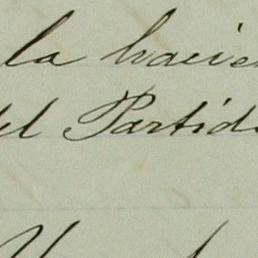 la hacien
del Partido